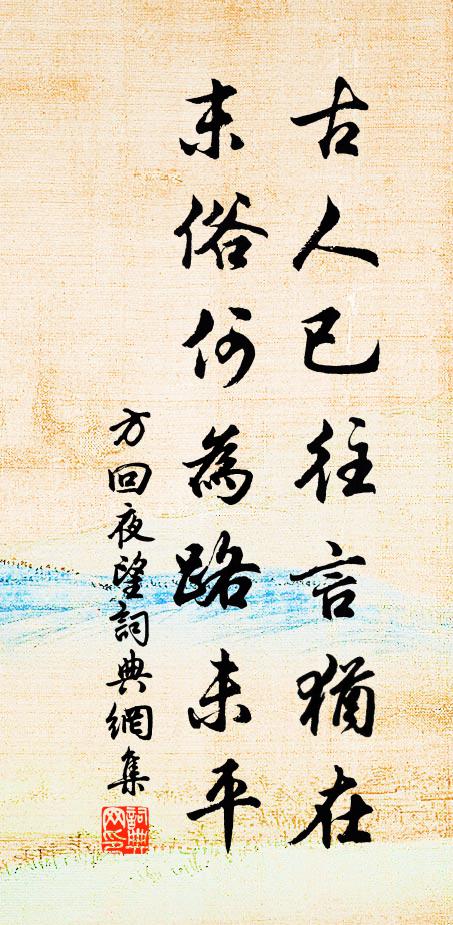 古人已往言猶在
末俗何為路未平
方回夜望詞典網集
詞典
网